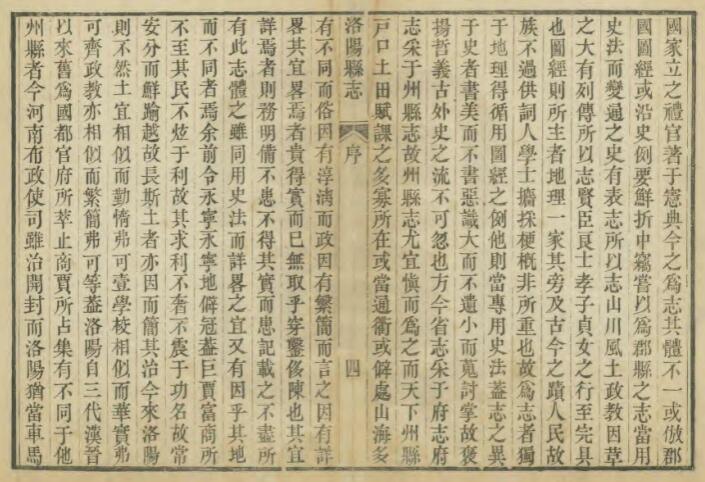 國家立之禮官著于憲典今之爲志其體不一或倣郡
國圖經或沿史例要鮮折中竊嘗以爲郡縣之志當用
史法而變通之史有表志所以志山川風土政教因革
之大有列傳所以志賢臣良士孝子貞女之行至完具
也圖經則所主者地理一家其旁及古今之蹟人民故
族不過供詞人學士攟採梗槪非所重也故爲志者獨
于地理得循用圖經之例他則當專用史法葢志之異
于史者書美而不書惡識大而不遺小而蒐討掌故褒
揚哲義古外史之流不可忽也方今省志采于府志府
志采于州縣志故州縣志尤宜愼而爲之而天下州縣
戸口土田賦課之多寡所在或當通衢或僻處山海多
洛陽縣志 序 四
有不同而俗因有淳漓而政因有繁簡而言之因有詳
畧其宜畧焉者貴得實而已無取乎穿鑿侈陳也其宜
詳焉者則務明備不患不得其實而患記載之不盡所
有此志體之雖同用史法而詳畧之宜又有因乎其地
而不同者焉余前令永寧永寧地僻冠葢巨賈富商所
不至其民不炫于利故其求利不奢不震于功名故常
安分而鮮踰越故長斯土者亦因而簡其治今來洛陽
則不然土宜相似而勤惰弗可壹學校相似而華實弗
可齊政教亦相似而繁簡弗可等葢洛陽自三代漢晉
以來舊爲國都官府所萃止商賈所占集有不同于他
州縣者今河南布政使司雖治開封而洛陽猶當車馬